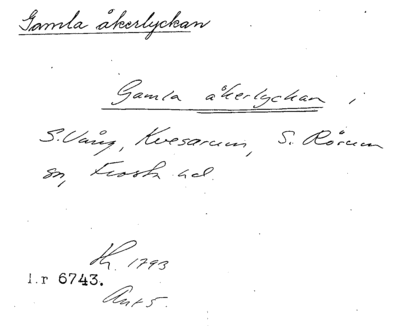 Gamla åkerlyckan
Gamla åkerlyckan,
S. Vång, Kvesarum, S. Rörum
sn, Frosta hd.
1793
l.r 6743.
Ant 5.